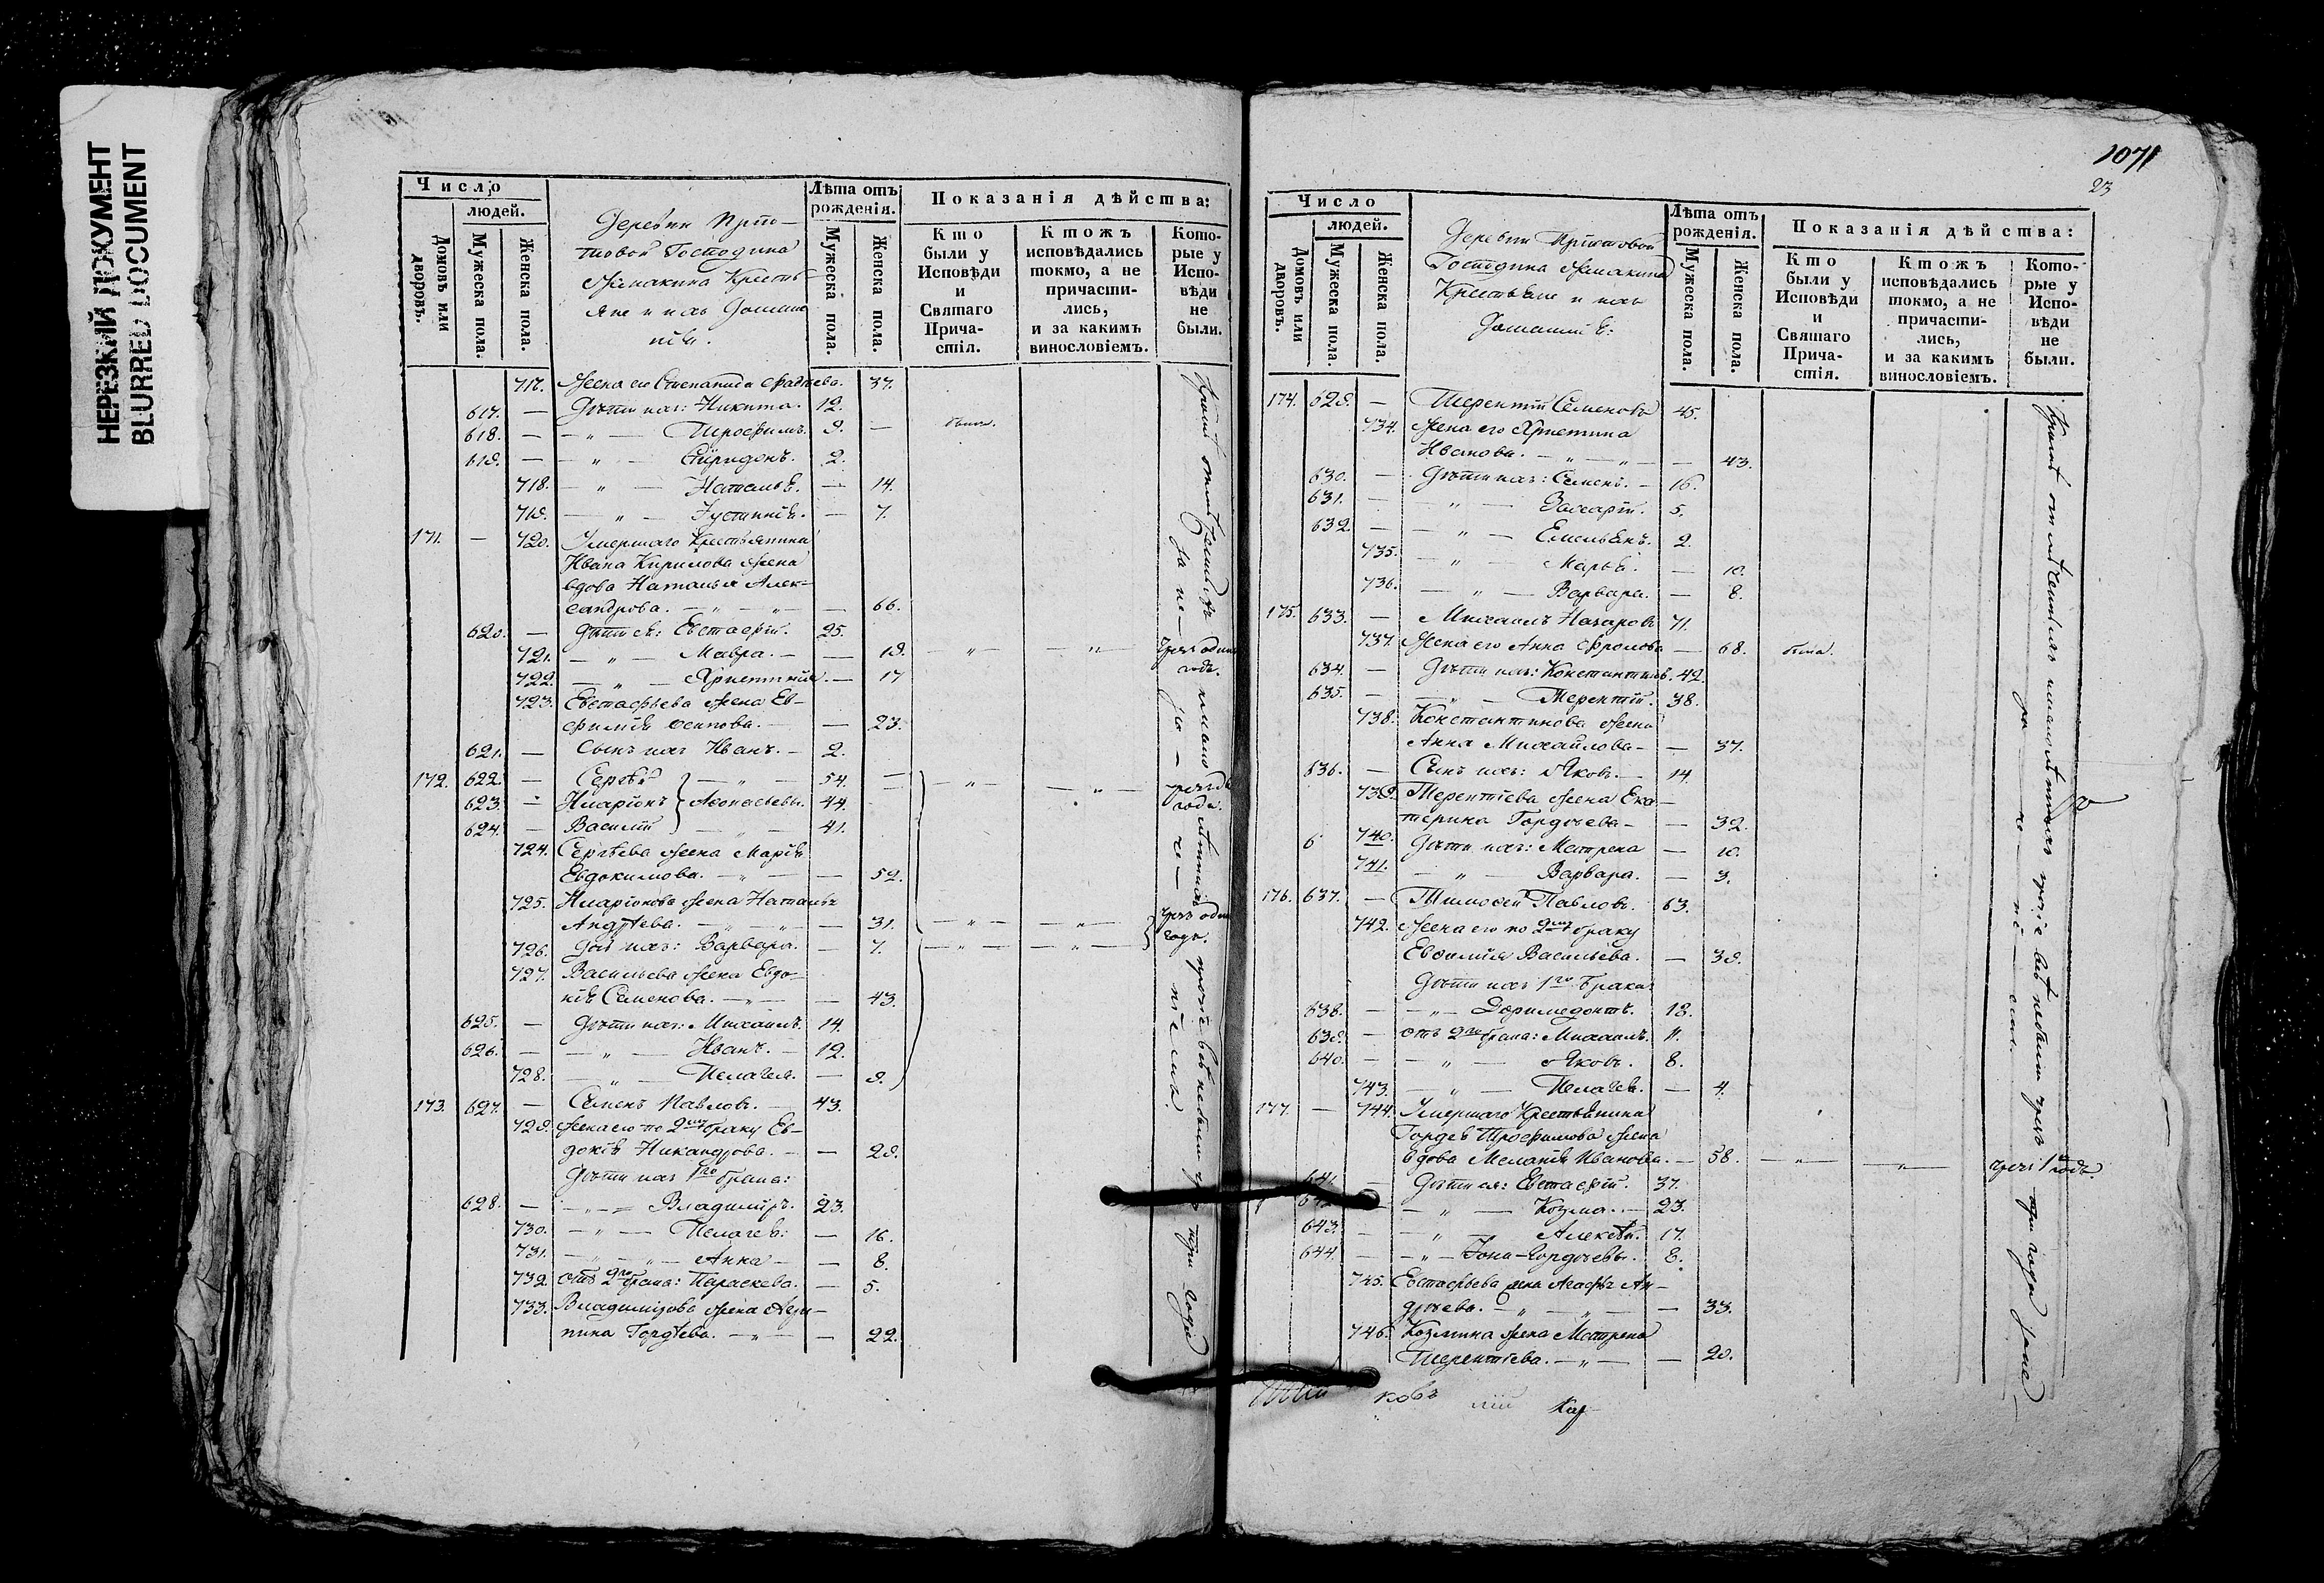 НЕРЕЗКИЙ ДОКУМЕНТ
BLURRED DOCUMENT
Число
людей.
Домовъ или дворовъ.
Мужеска пола.
Женска пола.
Господина
Лѣта отъ рожденія.
Мужеска пола.
Женска пола.
Показанія дѣйства:
Кто были у Исповѣди и Святаго Причастія.
Ктожъ исповѣдались токмо, а не причастились, и за какимъ винословіемъ.
Которые у Исповѣди не были.
717. Жена его Степанида 37.
617. — Дѣти ихъ: Никита. 12.
618. — — „ — Трофимъ. 9. —
619. — — „ — Спиридонъ. 2.
718. — „ — Наталья. — 14.
719. — „ — Іустинія. — 7.
171. — 720. Умершаго Крестьянина
Ивана Кирилова жена
вдова Наталья Алек-
сандрова. — „ — „ — — 66.
620. — Дѣти ея: Евстафій. 25.
721. — „ — Мавра. — — 19. — „ — — „ — чрезъ одинъ
годъ.
722. — „ — Христинія. — 17
723. Евстафьева жена Ев-
фимія Осипова. — — 23.
621. — Сынъ ихъ Иванъ. — 2.
172. 622. — Сергѣй — „ — 54. —
623. — Иларіонъ } Аѳонасьевы. 44.
624. — Василій — „ — 41.
724. Сергѣева жена Марія
Евдокимова. — „ — — 52.
725. Иларіонова жена Наталья
Андрѣева. — „ — „ — — 31. — „ — „ — чрезъ одинъ
годъ.
726. Дочь ихъ: Варвара. — 7. — „ — — „ —
727. Васильева жена Евдо-
кія Семенова. — „ — — 43.
625. — Дѣти ихъ: Михаилъ. 14.
626. — — „ — Иванъ. — 12.
728. — „ — Пелагея. — 9.
173. 627. — Семенъ Павловъ. — 43.
729. Жена его по 2му браку Ев-
докія Никандрова. — — 29.
Дѣти ихъ 1го брака:
628. — — „ — Владимиръ. 23.
730. — „ — Пелагея. — 16.
731. — „ — Анна — — 8.
732. отъ 2го брака: Параскева. — 5.
733. Владимирова жена Агри-
пина Гордѣева. — „ — — 22.
1071
23
Число
людей.
Домовъ или дворовъ.
Мужеска пола.
Женска пола.
Господина
Крестьяне и ихъ
Домашніе:
Лѣта отъ рожденія.
Мужеска пола.
Женска пола.
Показанія дѣйства:
Кто были у Исповѣди и Святаго Причастія.
Ктожъ исповѣдались токмо, а не причастились, и за какимъ винословіемъ.
Которые у Исповѣди не были.
174. 629. — Терентій Семеновъ 45.
734. Жена его Христина
Иванова. — „ — „ — — 43.
630. — Дѣти ихъ: Семенъ. — 16.
631. — — „ — Захарій. 5.
632. — — „ — Емельянъ. 2.
735. — „ — Марья. — 10.
736. — „ — Варвара. — 8.
175. 633. — Михаилъ Назаровъ 71.
737. Жена его Анна Фролова — 68. была.
634. — Дѣти ихъ: Константинъ. 42.
635. — — „ — Терентій. 38.
738. Константинова жена
Анна Михайлова — — 37.
636. — Сынъ ихъ: Яковъ. — 14.
739. Терентіева жена Ека-
терина Гордѣева — — 32.
6 740. Дѣти ихъ: Матрена — 10.
741. — „ — Варвара. — 3.
176. 637. — Тимоѳей Павловъ. 63.
742. Жена его по 2му браку
Евфимія Васильева. — 39.
Дѣти ихъ 1го брака
638. — — „ — Доримедонтъ. 18.
639. — отъ 2го брака: Михаилъ. 11.
640. — — „ — Яковъ. 8.
743. — „ — Пелагея. — 4.
177. — 744. Умершаго Крестьянина
Гордея Трофимова жена
вдова Меланія Иванова. — 58. — „ — — „ — чрезъ 1 годъ.
641. — Дѣти ея: Евстафій. 37.
— „ — Козма. — 23.
643. — — „ — Алексѣй. 17.
644. — — „ — Іона Гордѣевы. 8.
745. Евстафьева жена Агафья Ан-
дрѣева. — „ — „ — — 33.
746. Козмина жена Матрена
Терентіева. — „ — — 20.
ковъ